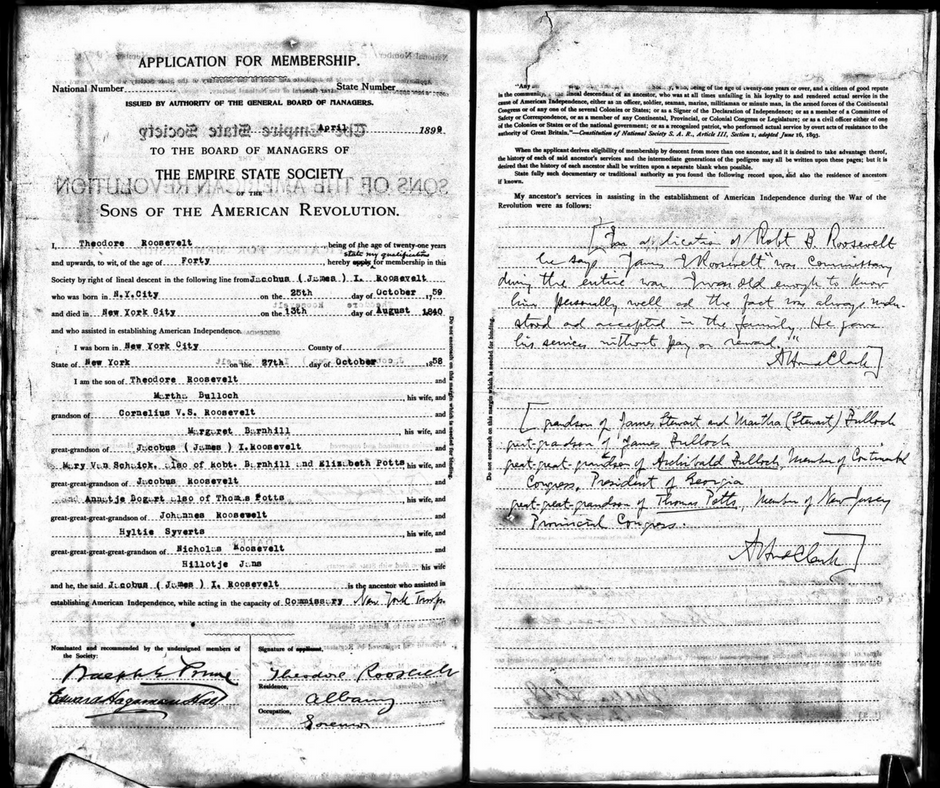 APPLICATION FOR MEMBERSHIP.
National Number State Number
ISSUED BY AUTHORITY OF THE GENERAL BOARD OF MANAGERS.
April 1899
TO THE BOARD OF MANAGERS OF
THE EMPIRE STATE SOCIETY
OF THE
SONS OF THE AMERICAN REVOLUTION.
I, Theodore Roosevelt being of the age of twenty-one years
state my qualifications
and upwards, to wit, of the age of Forty apply for membership in this
Society by right of lineal descent in the following line from Jacobus ( James ) I. Roosevelt
who was born in N.Y.City on the 25th day of October 1759
and died in New York City on the 13th day of August 1840
and who assisted in establishing American Independence.
I was born in New York City County of
State of New York on the 27th day of October 1858
I am the son of Theodore Roosevelt and
Martha Bulloch his wife, and
grandson of Cornelius V.S. Roosevelt and
Margaret Barnhill his wife, and
great-grandson of Jacobus ( James ) I. Roosevelt and
Mary Van Schaick, also of Robt. Barnhill and Elizabeth Potts his wife, and
great-great-grandson of Jacobus Roosevelt and
Annatje Bogart also of Thomas Potts his wife, and
great-great-great-grandson of Johannes Roosevelt and
Hyltie Syverts his wife, and
great-great-great-great-grandson of Nicholas Roosevelt and
Hillotje Jans his wife
and he, the said Jacobus ( James ) I. Roosevelt is the ancestor who assisted in
establishing American Independence, while acting in the capacity of Commissary New York Troops.
Nominated and recommended by the undersigned members of
the Society:
Edward Hagaman Hall
Signature of applicant,
Theodore Roosevelt
Residence,
Albany
Occupation,
Governor
Do not encroach on this margin which is needed for binding.
"Any who, being of the age of twenty-one years or over, and a citizen of good repute
in the community, is the lineal descendant of an ancestor, who was at all times unfailing in his loyalty to and rendered actual service in the
cause of American Independence, either as an officer, soldier, seaman, marine, militiaman or minute man, in the armed forces of the Continental
Congress or of any one of the several Colonies or States; or as a Signer of the Declaration of Independence; or as a member of a Committee of
Safety or Correspondence, or as a member of any Continental, Provincial, or Colonial Congress or Legislature; or as a civil officer either of one
of the Colonies or States or of the national government; or as a recognized patriot, who performed actual service by overt acts of resistance to the
authority of Great Britain."—Constitution of National Society S. A. R., Article III, Section 1, adopted June 16, 1893.
When the applicant derives eligibility of membership by descent from more than one ancestor, and it is desired to take advantage thereof,
the history of each of said ancestor's services and the intermediate generations of the pedigree may all be written upon these pages; but it is
desired that the history of each ancestor shall be written upon a separate blank when possible.
State fully such documentary or traditional authority as you found the following record upon, and also the residence of ancestors
if known.
My ancestor's services in assisting in the establishment of American Independence during the War of the
Revolution were as follows:
[In application of Robt B. Roosevelt
he says "James I Roosevelt" was Commissary
during the entire war. I was old enough to know
him personally well and the fact was always under-
stood and accepted in the family. He gave
his services without pay or reward."
A Howard Clark]
Do not encroach on this margin which is needed for binding.
[grandson of James Stewart and Martha (Stewart) Bulloch
great-grandson of James Bulloch
great-great-grandson of Archibald Bulloch, Member of Continental
Congress, President of Georgia
great-great-grandson of Thomas Potts, Member of New Jersey
Provincial Congress.
A Howard Clark]